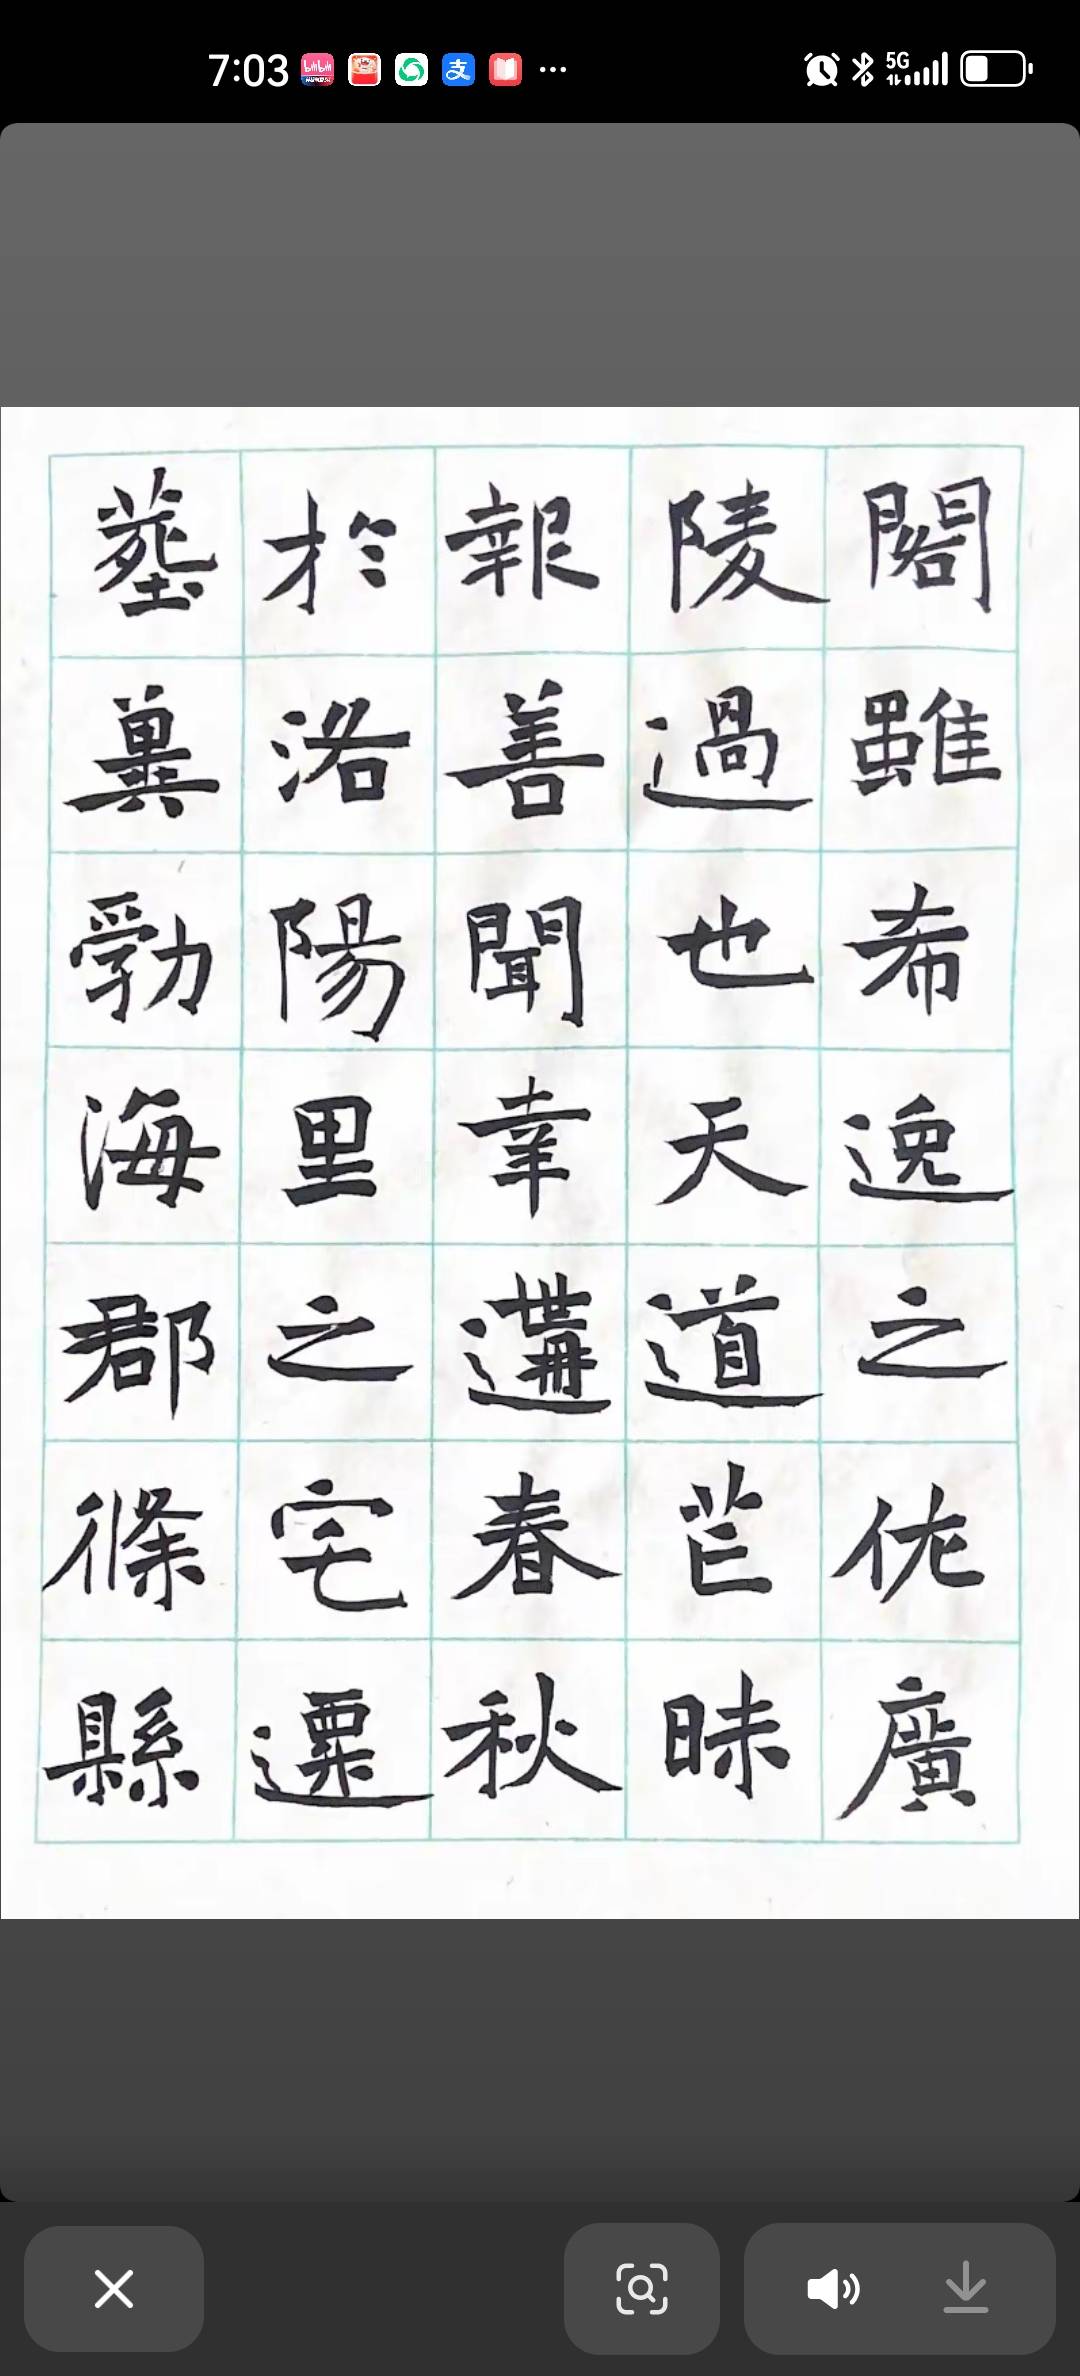 7:03
5G
閣雖希逸之侂廣
陵過也天道芒昧
報善聞幸遘春秋
於洛陽里之宅遷
塟兾勃海郡條縣